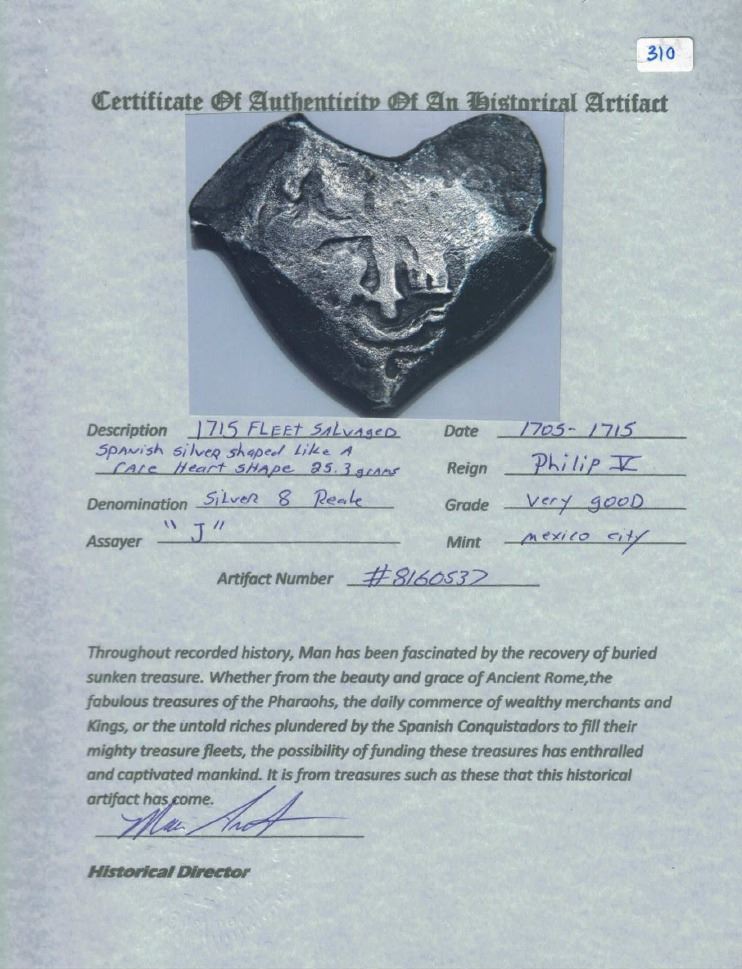 310
Certificate Of Authenticity Of An Historical Artifact
Description 1715 FLEET SALVAGED
Spanish silver shaped Like A
rare Heart SHAPE 25.3 grams
Date 1705-1715
Reign Philip V
Denomination Silver 8 Reale
Grade Very gooD
Assayer "J"
Mint mexico city
Artifact Number #8160537
Throughout recorded history, Man has been fascinated by the recovery of buried
sunken treasure. Whether from the beauty and grace of Ancient Rome,the
fabulous treasures of the Pharaohs, the daily commerce of wealthy merchants and
Kings, or the untold riches plundered by the Spanish Conquistadors to fill their
mighty treasure fleets, the possibility of funding these treasures has enthralled
and captivated mankind. It is from treasures such as these that this historical
artifact has come.
Historical Director